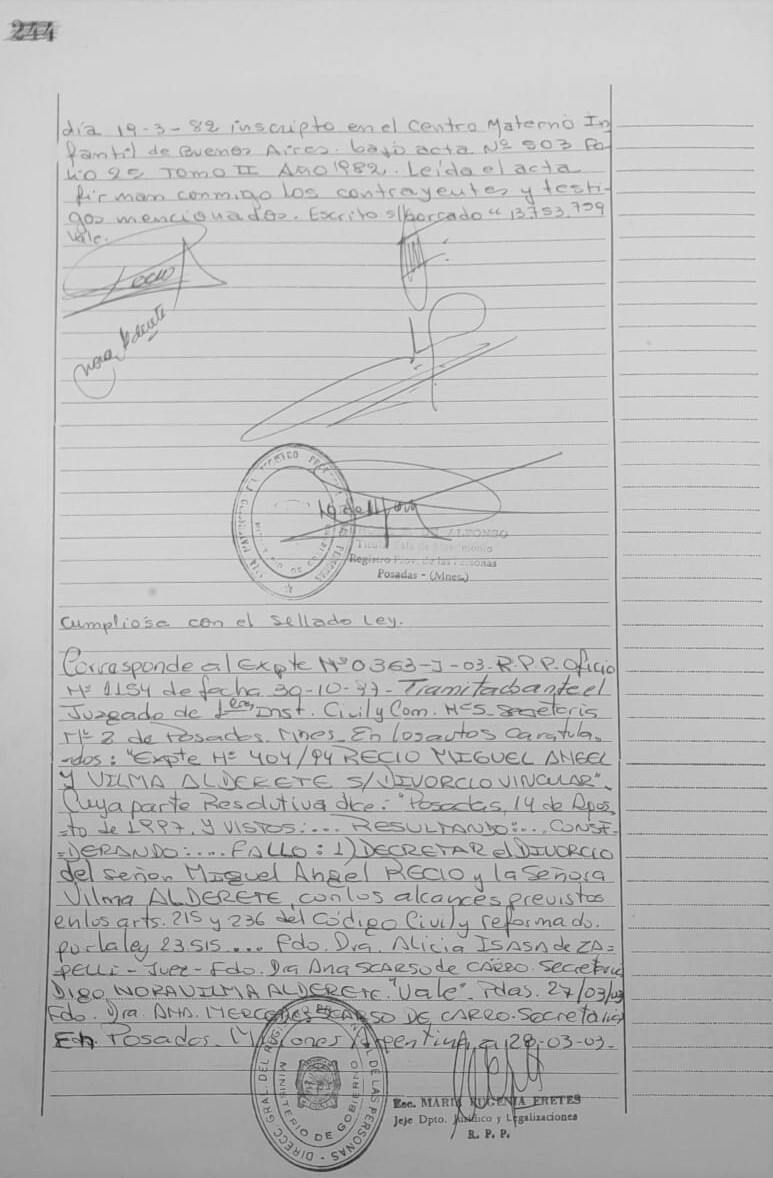 244
día 19-3-82 inscripto en el Centro Materno In
fantil de Buenos Aires. bajo acta Nº 503 Fo
lio 25 Tomo II Año 1982. Leída el acta
firman conmigo los contrayentes y testi-
gos mencionados. Escrito s/borrado " 13.753.759
Vale.
Recio
Nora Alderete
ALFONSO
Registro Prov. de las Personas
Posadas - (Mnes.)
Cumpliose con el sellado Ley.
Corresponde al Expte Nº 0363-J-03-R.P.P. Oficio
Nº 1154 de fecha 30-10-97- Tramitado ante el
Juzgado de 1era Inst. Civil y Com. Nº 5 Secretaria
Nº 2 de Posadas. Mnes. En los autos Caratula
-dos: "Expte Nº 404/94 RECIO MIGUEL ANGEL
Y VILMA ALDERETE S/DIVORCIO VINCULAR".
Cuya parte Resolutiva dice: "Posadas, 14 de Agos
=to de 1997. Y VISTOS:... RESULTANDO:... CONSI-
=DERANDO:.... FALLO: 1) DECRETAR el DIVORCIO
del señor Miguel Angel RECIO y la Señora
Vilma ALDERETE, con los alcances previstos
en los arts. 215 y 236 del Código Civil y reformado.
por la ley 23.515.... Fdo. Dra. Alicia ISASA de ZA=
PELLI - Juez - Fdo. Dra Ana SCARSO de CARRO. Secretaria
Digo NORA VILMA ALDERETE. "Vale". Pdas. 27/03/03
Fdo. Dra. ANA. MERCEDES SCARSO DE CARRO. Secretaria
En Posadas. Misiones Argentina, a 28-03-03-
DIRECC GRAL. DEL REG. DE LAS PERSONAS
MINISTERIO DE GOBIERNO
Esc. MARIA EUGENIA ERETES
Jefe Dpto. Jurídico y Legalizaciones
R. P. P.